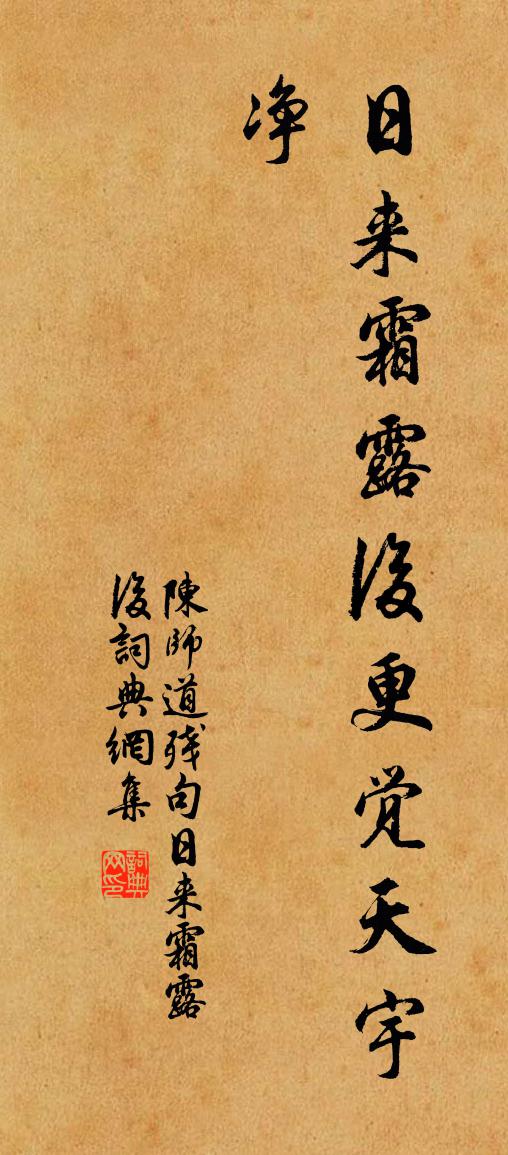 日来霜露後更觉天宇
净
陳師道殘句日来霜露
後詞典網集
詞典
网印